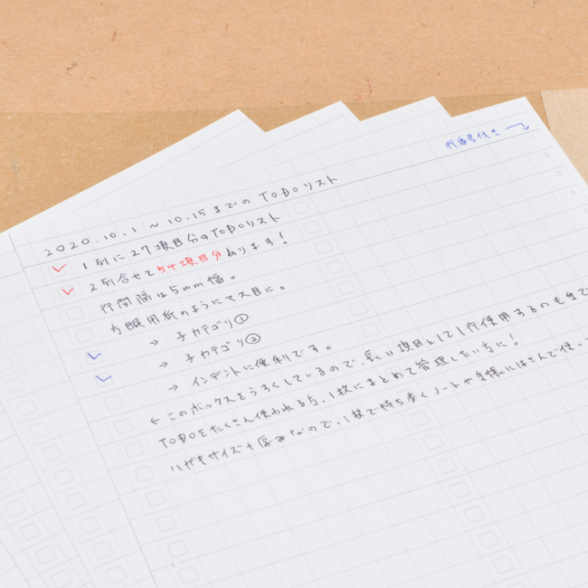 行番号付き →
2020.10.1 〜 10.15までのTODOリスト
1列に27項目分のTODOリスト
2列合せて54項目分あります!
行間隔は5mm幅。
方眼用紙のようにマス目に。
→ 子カテゴリ①
→ 子カテゴリ②
→ インデントに便利です。
← このボックスをうすくしているので、長い項目として1行使用するのもまた
TODOをたくさん使われる方、1枚にまとめて管理したい方に!
ハガキサイズ+厚みなので、1枚で持ち歩くノートや手帳にはさんで使